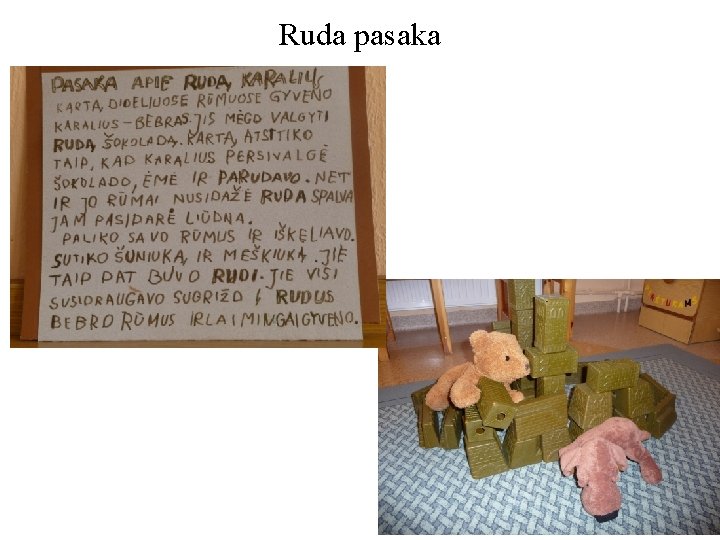 Ruda pasaka
PASAKA APIE RUDĄ KARALIŲ
KARTĄ, DIDELIUOSE RŪMUOSE GYVENO
KARALIUS-BEBRAS. JIS MĖGO VALGYTI
RUDĄ ŠOKOLADĄ. KARTĄ, ATSITIKO
TAIP, KAD KARALIUS PERSIVALGĖ
ŠOKOLADO, ĖMĖ IR PARUDAVO. NET
IR JO RŪMAI NUSIDAŽĖ RUDA SPALVA
JAM PASIDARĖ LIŪDNA.
PALIKO SAVO RŪMUS IR IŠKELIAVO.
SUTIKO ŠUNIUKĄ IR MEŠKIUKĄ. JIE
TAIP PAT BUVO RUDI. JIE VISI
SUSIDRAUGAVO SUGRĮŽO Į RUDUS
BEBRO RŪMUS IR LAIMINGAI GYVENO.